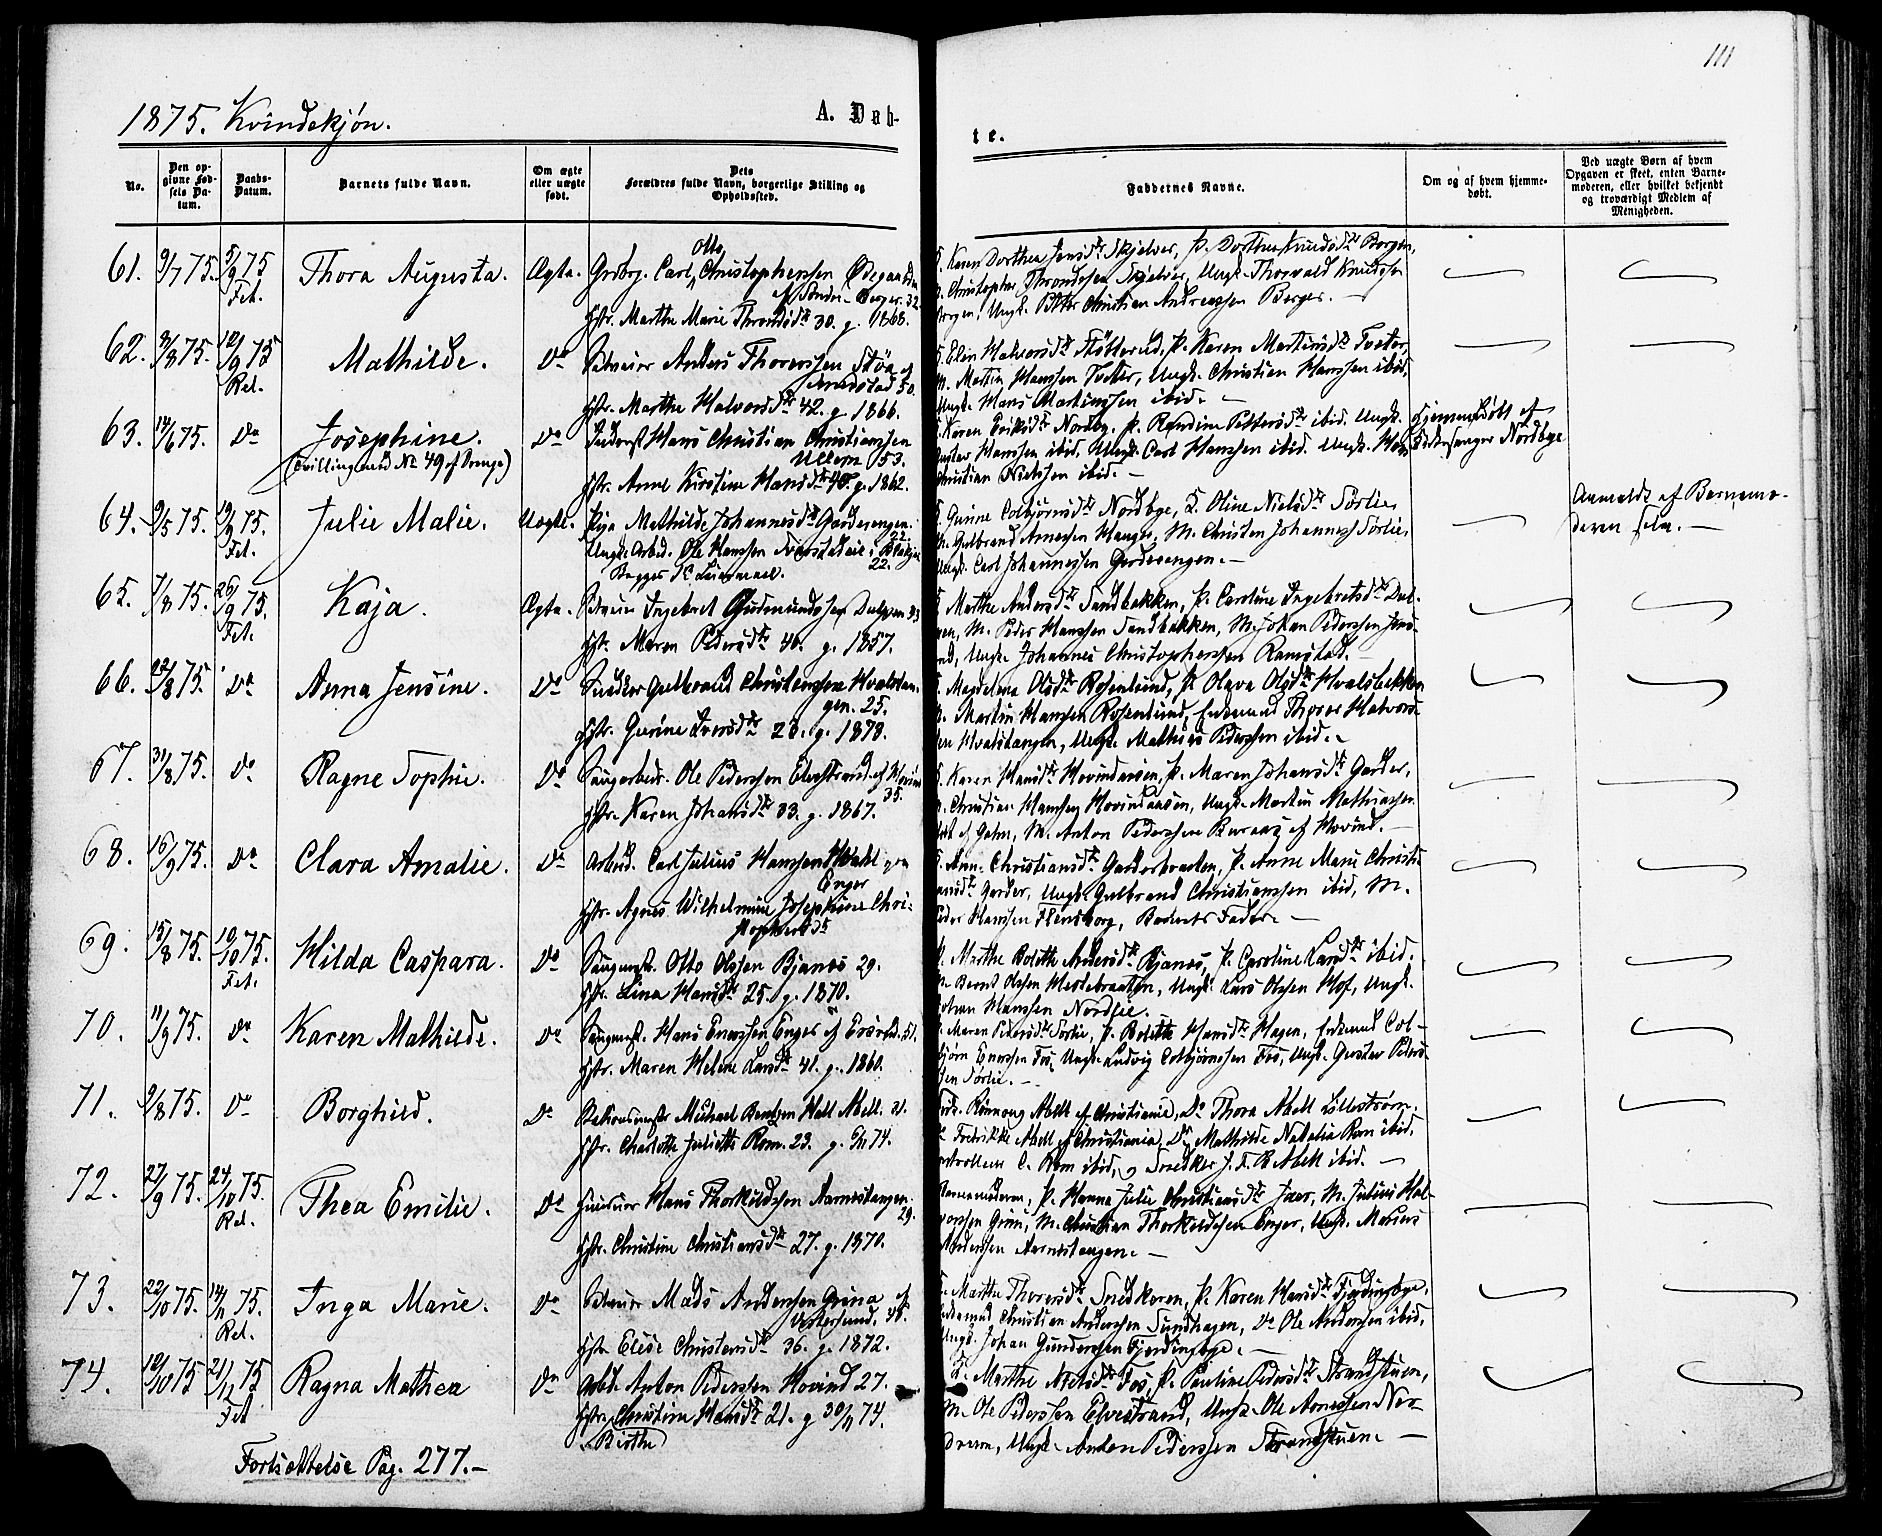 111
1875. Kvindekjøn.
A. Døb-
te.
No.
Den op-
givne Fød-
sels Da-
tum.
Daabs-
Datum.
Barnets fulde Navn.
Om ægte
eller uægte
født.
Dets
Forældres fulde Navn, borgerlige Stilling og
Opholdssted.
Faddernes Navne.
Om og af hvem hjemme-
døbt.
Ved uægte Børn af hvem
Opgaven er skeet, enten Barne-
moderen, eller hvilket bekjendt
og troværdigt Medlem af
Menigheden.
61. 9/7 75. 5/9 75 Fet. Thora Augusta. Ægte.
Otto
Carl Christophersen Ødegaarden
Berger. 32
Hstr. Marthe Marie Throndsdtr 30. g. 1868.
Karen Dorthea Jensdtr Skjelver, P. Dorthea Knudsdtr Borgen,
Christopher Throndsen Skjelver, Ungk. Thorvald Knudsen
Borgen, Ungk. Petter Christian Andreassen Berger. —
62. 8/8 75. 12/9 75 Rel. Mathilde. Do
Anders Thorersen Støa af
50.
Hstr. Marthe Halvorsdtr 42. g. 1866.
Elin Halvorsdtr P. Karen Martinsdtr Tveter,
M. Martin Hanssen Tveter, Ungk. Christian Hanssen ibid,
Ungk. Hans Martinssen ibid. —
63. 14/6 75. Do Josephine. Do
(Tvilling med No 49 af Drenge)
Hans Christian Christianssen
Ullern 53.
Hstr. Anne Kirstine Hansdtr 40. g. 1862.
Karen Eriksdtr Nordby. P. Randine Pettersdtr ibid. Ungk.
Hanssen ibid, Ungk. Carl Hanssen ibid. Ungk. Hans
Christian Nielssen ibid. —
Hjemmedøbt af
Kirkesanger Nordbye
64. 9/5 75. 19/9 75. Fet. Julie Malie. Uægte.
Pige Mathilde Johannesdtr Garderengen.
22.
Ungk. Arbeid. Ole Hanssen
22.
Begges 1ste Leiermaal.
Gurine Colbjørnsdtr Nordbye, K. Oline Nielsdtr Sørlie,
M. Gulbrand Arnesen Hauger, M. Christen Johannessen Sørlie,
Ungk. Carl Johannessen Garderengen. —
Anmeldt af Barnemo-
deren selv. —
65. 7/8 75. 26/9 75. Fet. Kaja. Ægte.
Ingebret Gudmundsen 53
Hstr. Maren Pedersdtr 40. g. 1857.
Marthe Andersdtr Sandbakken, P. Caroline Ingebretsdtr
M. Peder Hanssen Sandbakken, M. Johan Pederssen
Ungk. Johannes Christophersen Ramstad. —
66. 22/8 75. Do Anna Jensine. Do
Snedker Gulbrand Christensen Hvalstan-
gen. 25.
Hstr. Gurine Iversdtr 23. g. 1873.
Magdelena Olsdtr Rosenlund, P. Olava Olsdtr Hvalsbakken
M. Martin Hanssen Rosenlund, Enkemand Thorer Halvors-
sen Hvalstangen, Ungk. Mathias Pederssen ibid. —
67. 31/8 75. Do Ragne Sophie. Do
Saugarbeid. Ole Pederssen Elvestrand af Hovind
35.
Hstr. Karen Johansdtr 33. g. 1867.
Karen Hansdtr Hovindaasen, P. Maren Johansdtr Garder,
M. Christian Hanssen Hovindaasen, Ungk. Martin Mathiassen
M. Anton Pederssen af Hovind. —
68. 16/9 75. Do Clara Amalie. Do
Arbeid. Carl Julius Hanssen
Enger
Hstr. Agnes Wilhelmine Josephine Chri-
Anne Christiansdtr Garderbraaten, P. Anne Marie Christi-
ansdtr Garder, Ungk. Gulbrand Christianssen ibid, M.
Peder Hanssen Flensborg, Barnets Fader. —
69. 15/8 75. 10/10 75. Fet. Hilda Caspara. Do
Otto Olssen Bjanes 29.
Hstr. Lina Hansdtr 25. g. 1870.
P. Marthe Bolette Andersdtr Bjanes, P. Caroline Larsdtr ibid.
M. Bernt Olssen Heksebraaten, Ungk. Lars Olssen Hof, Ungk.
Johan Hanssen Nordlie.
70. 11/9 75. Do Karen Mathilde. Do
Hans Enerssen Enger af 51.
Hstr. Maren Helene Larsdtr 41. g. 1860.
Maren Pedersdtr Sørlie, P. Bolette Hansdtr Hagen, Enkemand Col-
bjørn Enerssen Fos, Ungk. Ludvig Colbjørnssen Fos, Ungk. Gustav Peders-
sen Sørlie. —
71. 9/8 75. Do Borghild. Do
Michael Hall Abell. 31.
Hstr. Charlotte Juliette Rom. 23. g. 6/11 74.
Rønnaug Abell af Christiania, Do Thora Abell Lillestrøm.
Fredrikke Abell af Christiania, Do Mathilde Natalia Rom ibid.
C. Rom ibid, og Snedker J. F. R. Abell ibid. —
72. 27/9 75. 24/10 75. Rel. Thea Emilie. Do
Huuseier Hans Thorkildssen Aarnestangen.
29.
Hstr. Christine Christiansdtr 27. g. 1870.
Barnemoderen, P. Hanna Julie Christiansdtr Jaer, M. Julius Hal-
vorssen Grini, M. Christian Thorkildssen Enger, Ungk. Marius
Anderssen Aarnestangen. —
73. 22/10 75. 14/11 75. Rel. Inga Marie. Do
Mads Anderssen Grina af
Vestersund. 48.
Hstr Elise Christensdtr 36. g. 1872.
Marthe Thorersdtr Snedkeren, P. Karen Hansdtr Fjerdingbye,
Enkemand Christian Anderssen Sundhagen, Do Ole Anderssen ibid,
Ungk. Johan Gunderssen Fjerdingbye. —
74. 10/10 75 21/11 75 Fet Ragna Mathea Do
Arbd. Anton Pederssen Hovind 27.
Hstr. Christine Hansdtr 21. g 30/11 74.
Birthe
K. Marthe Nielsdtr Fos, P. Pauline Pedersdtr Strandstuen,
M. Ole Pederssen Elvestrand, Ungk. Ole Arnessen Nor-
dreven, Ungk. Anton Pederssen Strandstuen. —
Fortsættelse Pag. 277. —